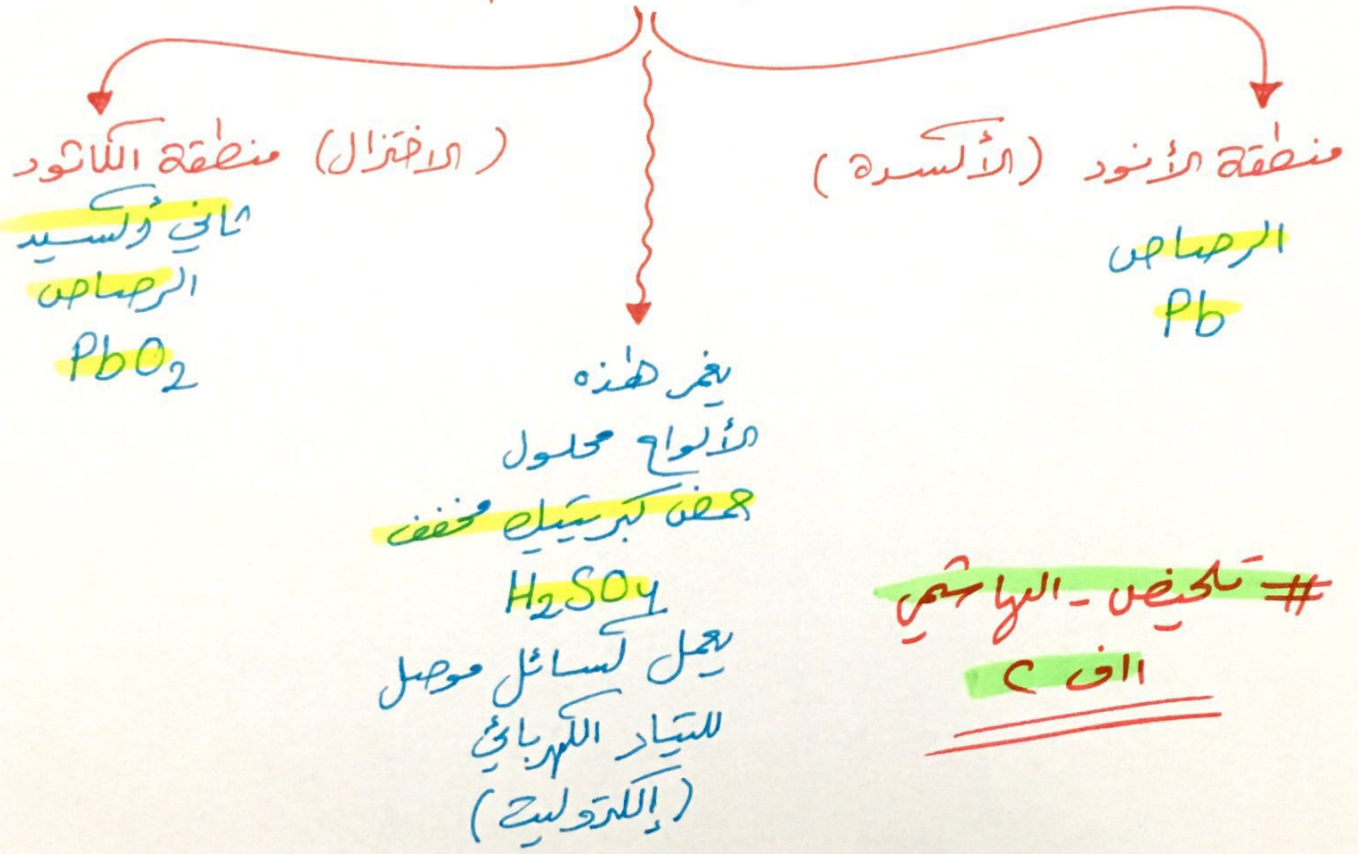 منطقة الأنود (الأكسدة)
الرصاص
Pb
منطقة الكاثود (الاختزال)
ثاني أكسيد
الرصاص
PbO₂
يغمر هذه
الألواح محلول
حمض كبريتيك مخفف
H₂SO₄
يعمل كسائل موصل
للتيار الكهربائي
(إلكتروليت)
# تلخيص - الهاشمي
١١ف٢